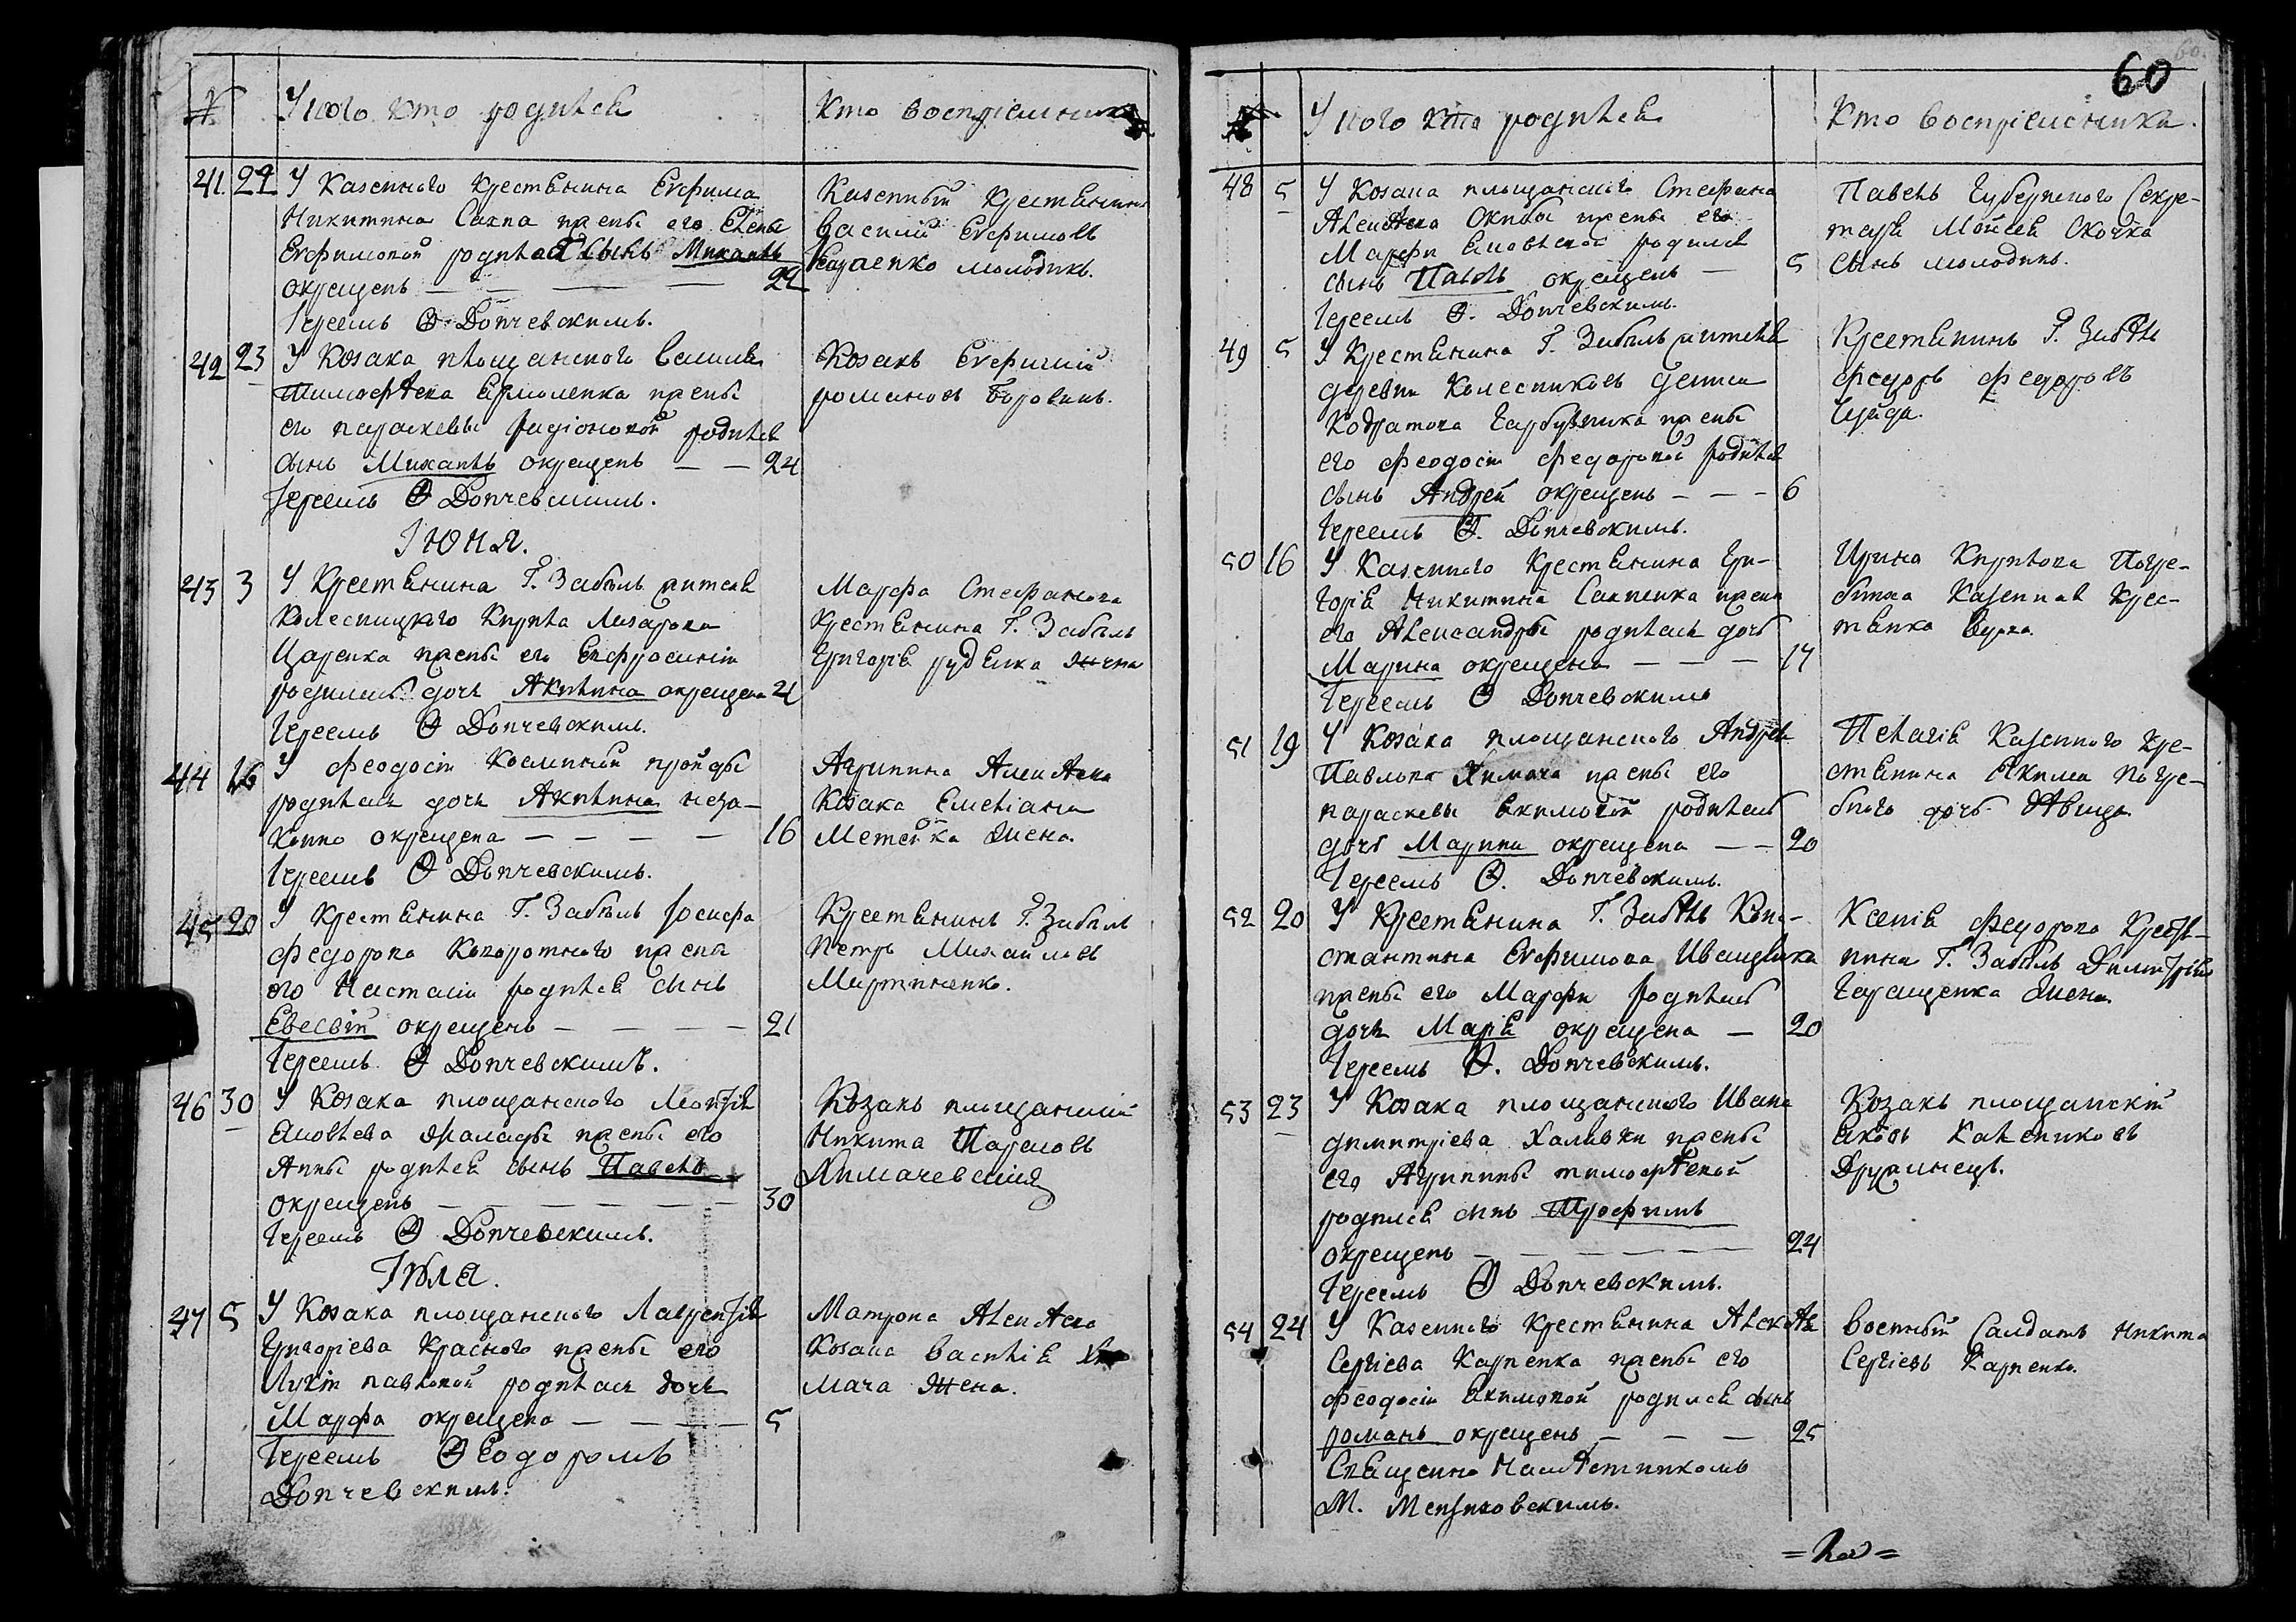 60
№ У кого кто родился Кто воспріемники
41. 22 У Казенного Крестьянина Евфима
Никитина его Елены
Евфимовой родился сынъ Михаилъ
окрещенъ — — — — 22
Іереемъ Ѳ. Допчевскимъ.
Казенный Крестьянинъ
Василій Евфимовъ
молодикъ.
42 23 У Козака площанского Василія
Тимофѣева Ермоленка жены
его Параскевы Радіоновой родился
сынъ Михаилъ окрещенъ — — 24
Іереемъ Ѳ Допчевскимъ.
Козакъ Евфимій
Романовъ Боровикъ.
Іюня.
43 3 У Крестьянина Г. Забѣлъ жителя
Колесницкого Кирила Лазарова
Царенка жены его Евфросиніи
родилась дочь Акилина окрещена 4
Іереемъ Ѳ Допчевскимъ.
Марфа Стефанова
Крестьянина Г. Забѣлъ
Григорія Руденка жена
44 16 У Феодосіи
родилась дочь Акилина неза-
конно окрещена — — — — 16
Іереемъ Ѳ Допчевскимъ.
Агрипина Алексѣева
Козака Емеліана
жена.
45 20 У Крестьянина Г. Забѣлъ Іосифа
Федорова жены
его Настасіи родился сынъ
Евсевій окрещенъ — — — — 21
Іереемъ Ѳ Допчевскимъ.
Крестьянинъ Г. Забѣлъ
Петръ Михайловъ
Мартиненко.
46 30 У Козака площанского Леонтія
Яковлева жены его
Анны родился сынъ Павелъ
окрещенъ — — — — — — 30
Іереемъ Ѳ Допчевскимъ.
Козакъ площанскій
Никита Тарасовъ
Іюля.
47 5 У Козака площанского Лаврентія
Григоріева Красного жены его
Лукіи Павловой родилась дочь
Марфа окрещена — — — — 5
Іереемъ Ѳеодоромъ
Допчевскимъ.
Матрона Алексѣева
Козака Василія Хи-
мача жена.
№ У кого кто родился Кто воспріемники.
48 5 У Козака площанского Стефана
Алексѣева жены его
Марфи Яковлевой родился
сынъ Павелъ окрещенъ — 5
Іереемъ Ѳ. Допчевскимъ.
Павелъ Губерского Секре-
таря Моисея Скочка
сынъ молодикъ.
49 5 У Крестьянина Г. Забѣлъ жителя
деревни Колесниковъ Дениса
Кодратова Гарбузника жены
его Феодосіи Федоровой родился
сынъ Андрей окрещенъ — — — 6
Іереемъ Ѳ. Допчевскимъ.
Крестьянинъ Г. Забѣлъ
Федоръ Федоровъ
50 16 У Казенного Крестьянина Гри-
горія Никитина жены
его Александры родилась дочь
Марина окрещена — — — 17
Іереемъ Ѳ Допчевскимъ
Ирина Кирилова Погре-
бная Казенная Крес-
тянка вдова.
51 19 У Козака площанского Андрея
Павлова Химача жены его
Параскевы Екимовой родилась
дочь Марина окрещена — — 20
Іереемъ Ѳ. Допчевскимъ.
Пелагія Казенного Кре-
стянина Якима Погре-
бного дочь дѣвица
52 20 У Крестьянина Г. Забѣлъ Кон-
стантина Евфимова
жены его Марфи родилась
дочь Марія окрещена — 20
Іереемъ Ѳ. Допчевскимъ.
Ксенія Федорова Крестья-
нина Г. Забѣлъ Димитрія
Геращенка жена
53 23 У Козака площанского Ивана
Димитріева Халявки жены
его Агрипины Тимофѣевой
родился сынъ Трофимъ
окрещенъ — — — — — — 24
Іереемъ Ѳ Допчевскимъ.
Козакъ площанскій
Яковъ Калениковъ
54 24 У Казенного Крестьянина Алексѣя
Сергіева Карпенка жены его
Феодосіи Якимовой родился сынъ
Романъ окрещенъ — — — 25
Священно Намѣстникомъ
М.
Военный Салдатъ Никита
Сергіевъ Карпенко.